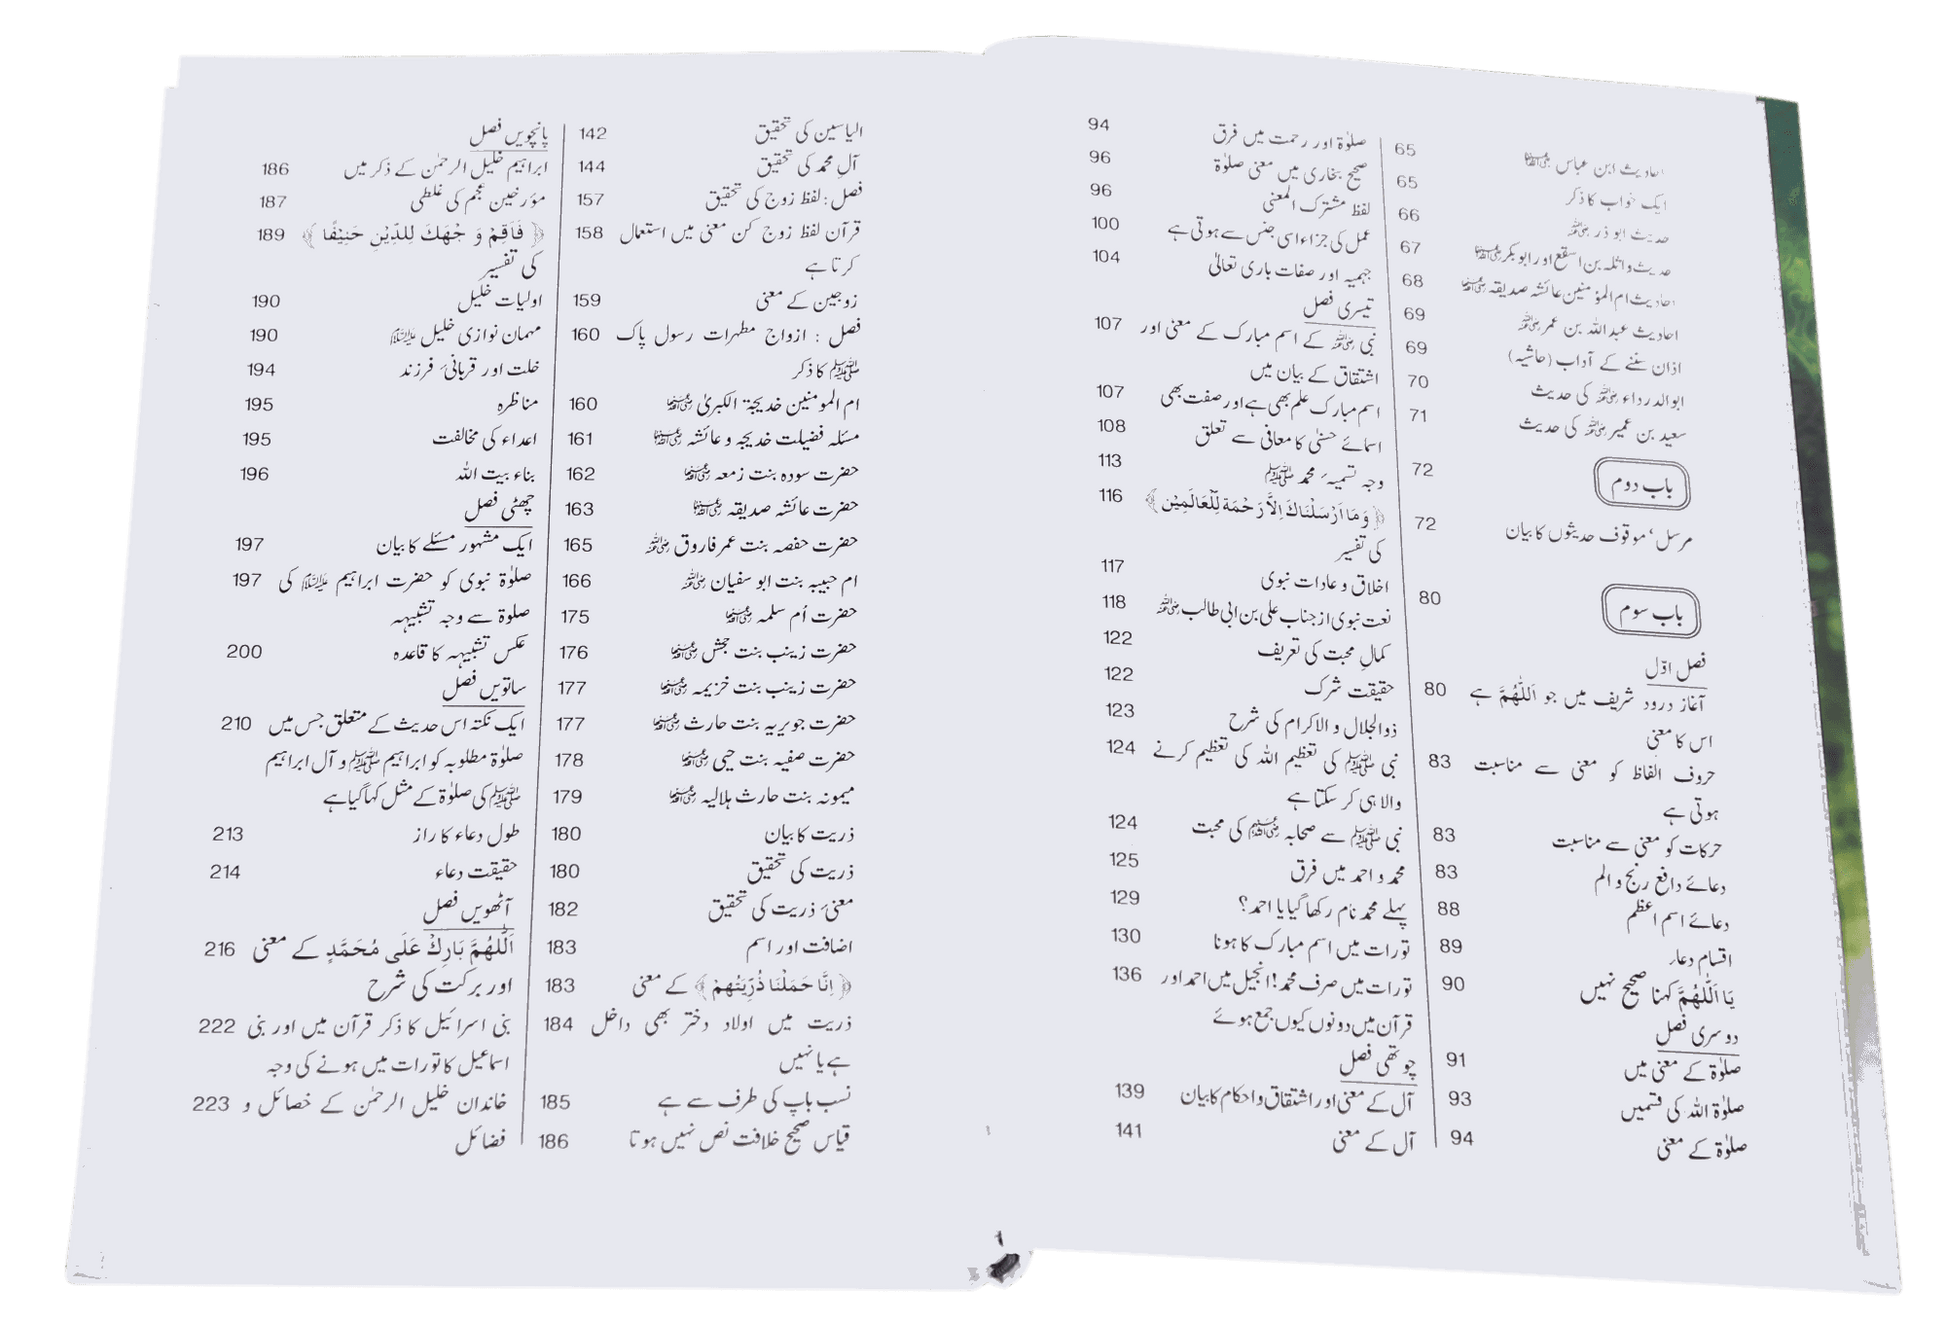 احادیث ابن عباس رضی اللہ عنہما 65
ایک خواب کا ذکر 65
حدیث ابو ذر رضی اللہ عنہ 66
حدیث واثلہ بن اسقع اور ابو بکر رضی اللہ عنہما 67
احادیث ام المؤمنین عائشہ صدیقہ رضی اللہ عنہا 68
احادیث عبداللہ بن عمر رضی اللہ عنہ 69
اذان سننے کے آداب (حاشیہ) 69
ابو الدرداء رضی اللہ عنہ کی حدیث 70
سعید بن عمیر رضی اللہ عنہ کی حدیث 71
باب دوم 72
مرسل، موقوف حدیثوں کا بیان 72
باب سوم 80
فصل اوّل
آغاز درود شریف میں جو اَللّٰھُمَّ ہے 80
اس کا معنی
حروف الفاظ کو معنی سے مناسبت 83
ہوتی ہے
حرکات کو معنی سے مناسبت 83
دعائے دافع رنج و الم 83
دعائے اسم اعظم 88
اقسام دعاء 89
یَا اَللّٰھُمَّ کہنا صحیح نہیں 90
دوسری فصل
صلوٰۃ کے معنی میں 91
صلوٰۃ اللہ کی قسمیں 93
صلوٰۃ کے معنی 94
صلوٰۃ اور رحمت میں فرق 94
صحیح بخاری میں معنی صلوٰۃ 96
لفظ مشترک المعنی 96
عمل کی جزاء اسی جنس سے ہوتی ہے 100
جہمیہ اور صفات باری تعالیٰ 104
تیسری فصل
نبی ﷺ کے اسم مبارک کے معنی اور 107
اشتقاق کے بیان میں
اسم مبارک علم بھی ہے اور صفت بھی 107
اسمائے حسنیٰ کا معانی سے تعلق 108
وجہ تسمیہٴ محمد ﷺ 113
﴿ وَمَا اَرْسَلْنَاكَ اِلاَّ رَحْمَة لِّلْعَالَمِيْن ﴾ 116
کی تفسیر
اخلاق و عادات نبوی 117
نعت نبوی از جناب علی بن ابی طالب رضی اللہ عنہ 118
کمالِ محبت کی تعریف 122
حقیقت شرک 122
ذوالجلال و الاکرام کی شرح 123
نبی ﷺ کی تعظیم اللہ کی تعظیم کرنے 124
والا ہی کر سکتا ہے
نبی ﷺ سے صحابہ رضی اللہ عنہم کی محبت 124
محمد و احمد میں فرق 125
پہلے محمد نام رکھا گیا یا احمد؟ 129
تورات میں اسم مبارک کا ہونا 130
تورات میں صرف محمد! انجیل میں احمد اور 136
قرآن میں دونوں کیوں جمع ہوئے
چوتھی فصل
آل کے معنی اور اشتقاق و احکام کا بیان 139
آل کے معنی 141
الیاسین کی تحقیق 142
آلِ محمد کی تحقیق 144
فصل: لفظ زوج کی تحقیق 157
قرآن لفظ زوج کن معنی میں استعمال 158
کرتا ہے
زوجین کے معنی 159
فصل : ازواج مطہرات رسول پاک 160
ﷺ کا ذکر
ام المومنین خدیجۃ الکبریٰ رضی اللہ عنہا 160
مسئلہ فضیلت خدیجہ و عائشہ رضی اللہ عنہما 161
حضرت سودہ بنت زمعہ رضی اللہ عنہا 162
حضرت عائشہ صدیقہ رضی اللہ عنہا 163
حضرت حفصہ بنت عمر فاروق رضی اللہ عنہ 165
ام حبیبہ بنت ابو سفیان رضی اللہ عنہ 166
حضرت اُم سلمہ رضی اللہ عنہا 175
حضرت زینب بنت جحش رضی اللہ عنہا 176
حضرت زینب بنت خزیمہ رضی اللہ عنہا 177
حضرت جویریہ بنت حارث رضی اللہ عنہا 177
حضرت صفیہ بنت حیی رضی اللہ عنہا 178
میمونہ بنت حارث ہلالیہ رضی اللہ عنہا 179
ذریت کا بیان 180
ذریت کی تحقیق 180
معنیٔ ذریت کی تحقیق 182
اضافت اور اسم 183
﴿ اِنَّا حَمَلْنَا ذُرِّيَّتُهمْ ﴾ کے معنی 183
ذریت میں اولاد دختر بھی داخل 184
ہے یا نہیں
نسب باپ کی طرف سے ہے 185
قیاس صحیح خلافت نص نہیں ہوتا 186
پانچویں فصل
ابراہیم خلیل الرحمٰن کے ذکر میں 186
مؤرخین عجم کی غلطی 187
﴿ فَاَقِمْ وَ جْهَكَ لِلدِّيْنِ حَنِيْفًا ﴾ 189
کی تفسیر
اولیات خلیل 190
مہمان نوازی خلیل علیہ السلام 190
خلت اور قربانیٔ فرزند 194
مناظرہ 195
اعداء کی مخالفت 195
بناء بیت اللہ 196
چھٹی فصل
ایک مشہور مسئلے کا بیان 197
صلوٰۃ نبوی کو حضرت ابراہیم علیہ السلام کی 197
صلوۃ سے وجہ تشبیہہ
عکس تشبیہہ کا قاعدہ 200
ساتویں فصل
ایک نکتہ اس حدیث کے متعلق جس میں 210
صلوٰۃ مطلوبہ کو ابراہیم ﷺ و آل ابراہیم
ﷺ کی صلوٰۃ کے مثل کہا گیا ہے
طول دعاء کا راز 213
حقیقت دعاء 214
آٹھویں فصل
اَللّٰهُمَّ بَارِكْ عَلَى مُحَمَّدٍ کے معنی 216
اور برکت کی شرح
بنی اسرائیل کا ذکر قرآن میں اور بنی 222
اسماعیل کا تورات میں ہونے کی وجہ
خاندان خلیل الرحمٰن کے خصائل و 223
فضائل